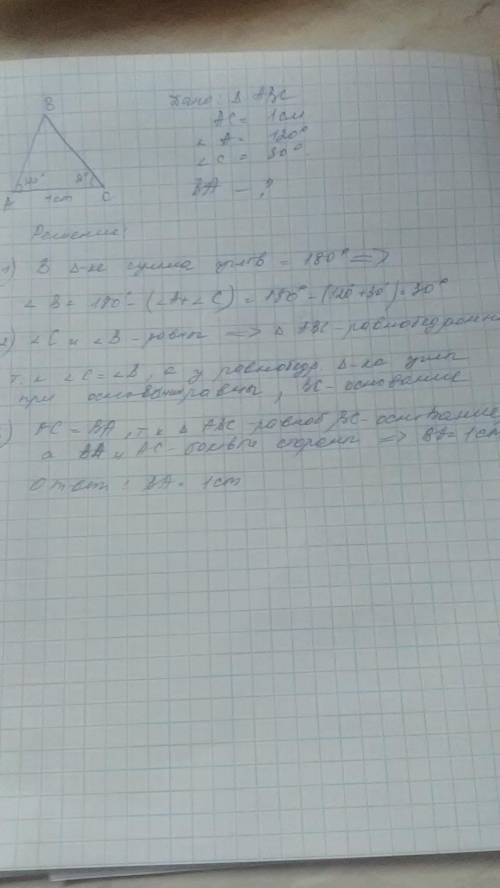 B
120°
30°
A 1cm C
Дано: Δ ABC
AC = 1см
∠ A = 120°
∠ C = 30°
BA - ?
Решение:
1) В Δ-ке сумма углов = 180° =>
∠ B = 180° - (∠A+∠C) = 180° - (120°+30°) = 30°
2) ∠C и ∠B - равны => Δ ABC - равнобедренный
т. к ∠C = ∠B, а у равнобедр. Δ-ка углы
при основании равны, BC - основание
) AC = BA, т. к Δ ABC - равноб BC - основание,
а BA и AC - боковые стороны => BA = 1cm
Ответ: BA = 1cm